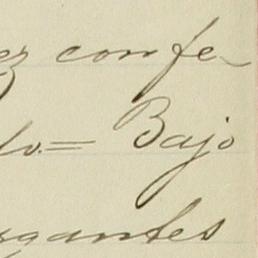 ez confe-
do.= Bajo
rgantes